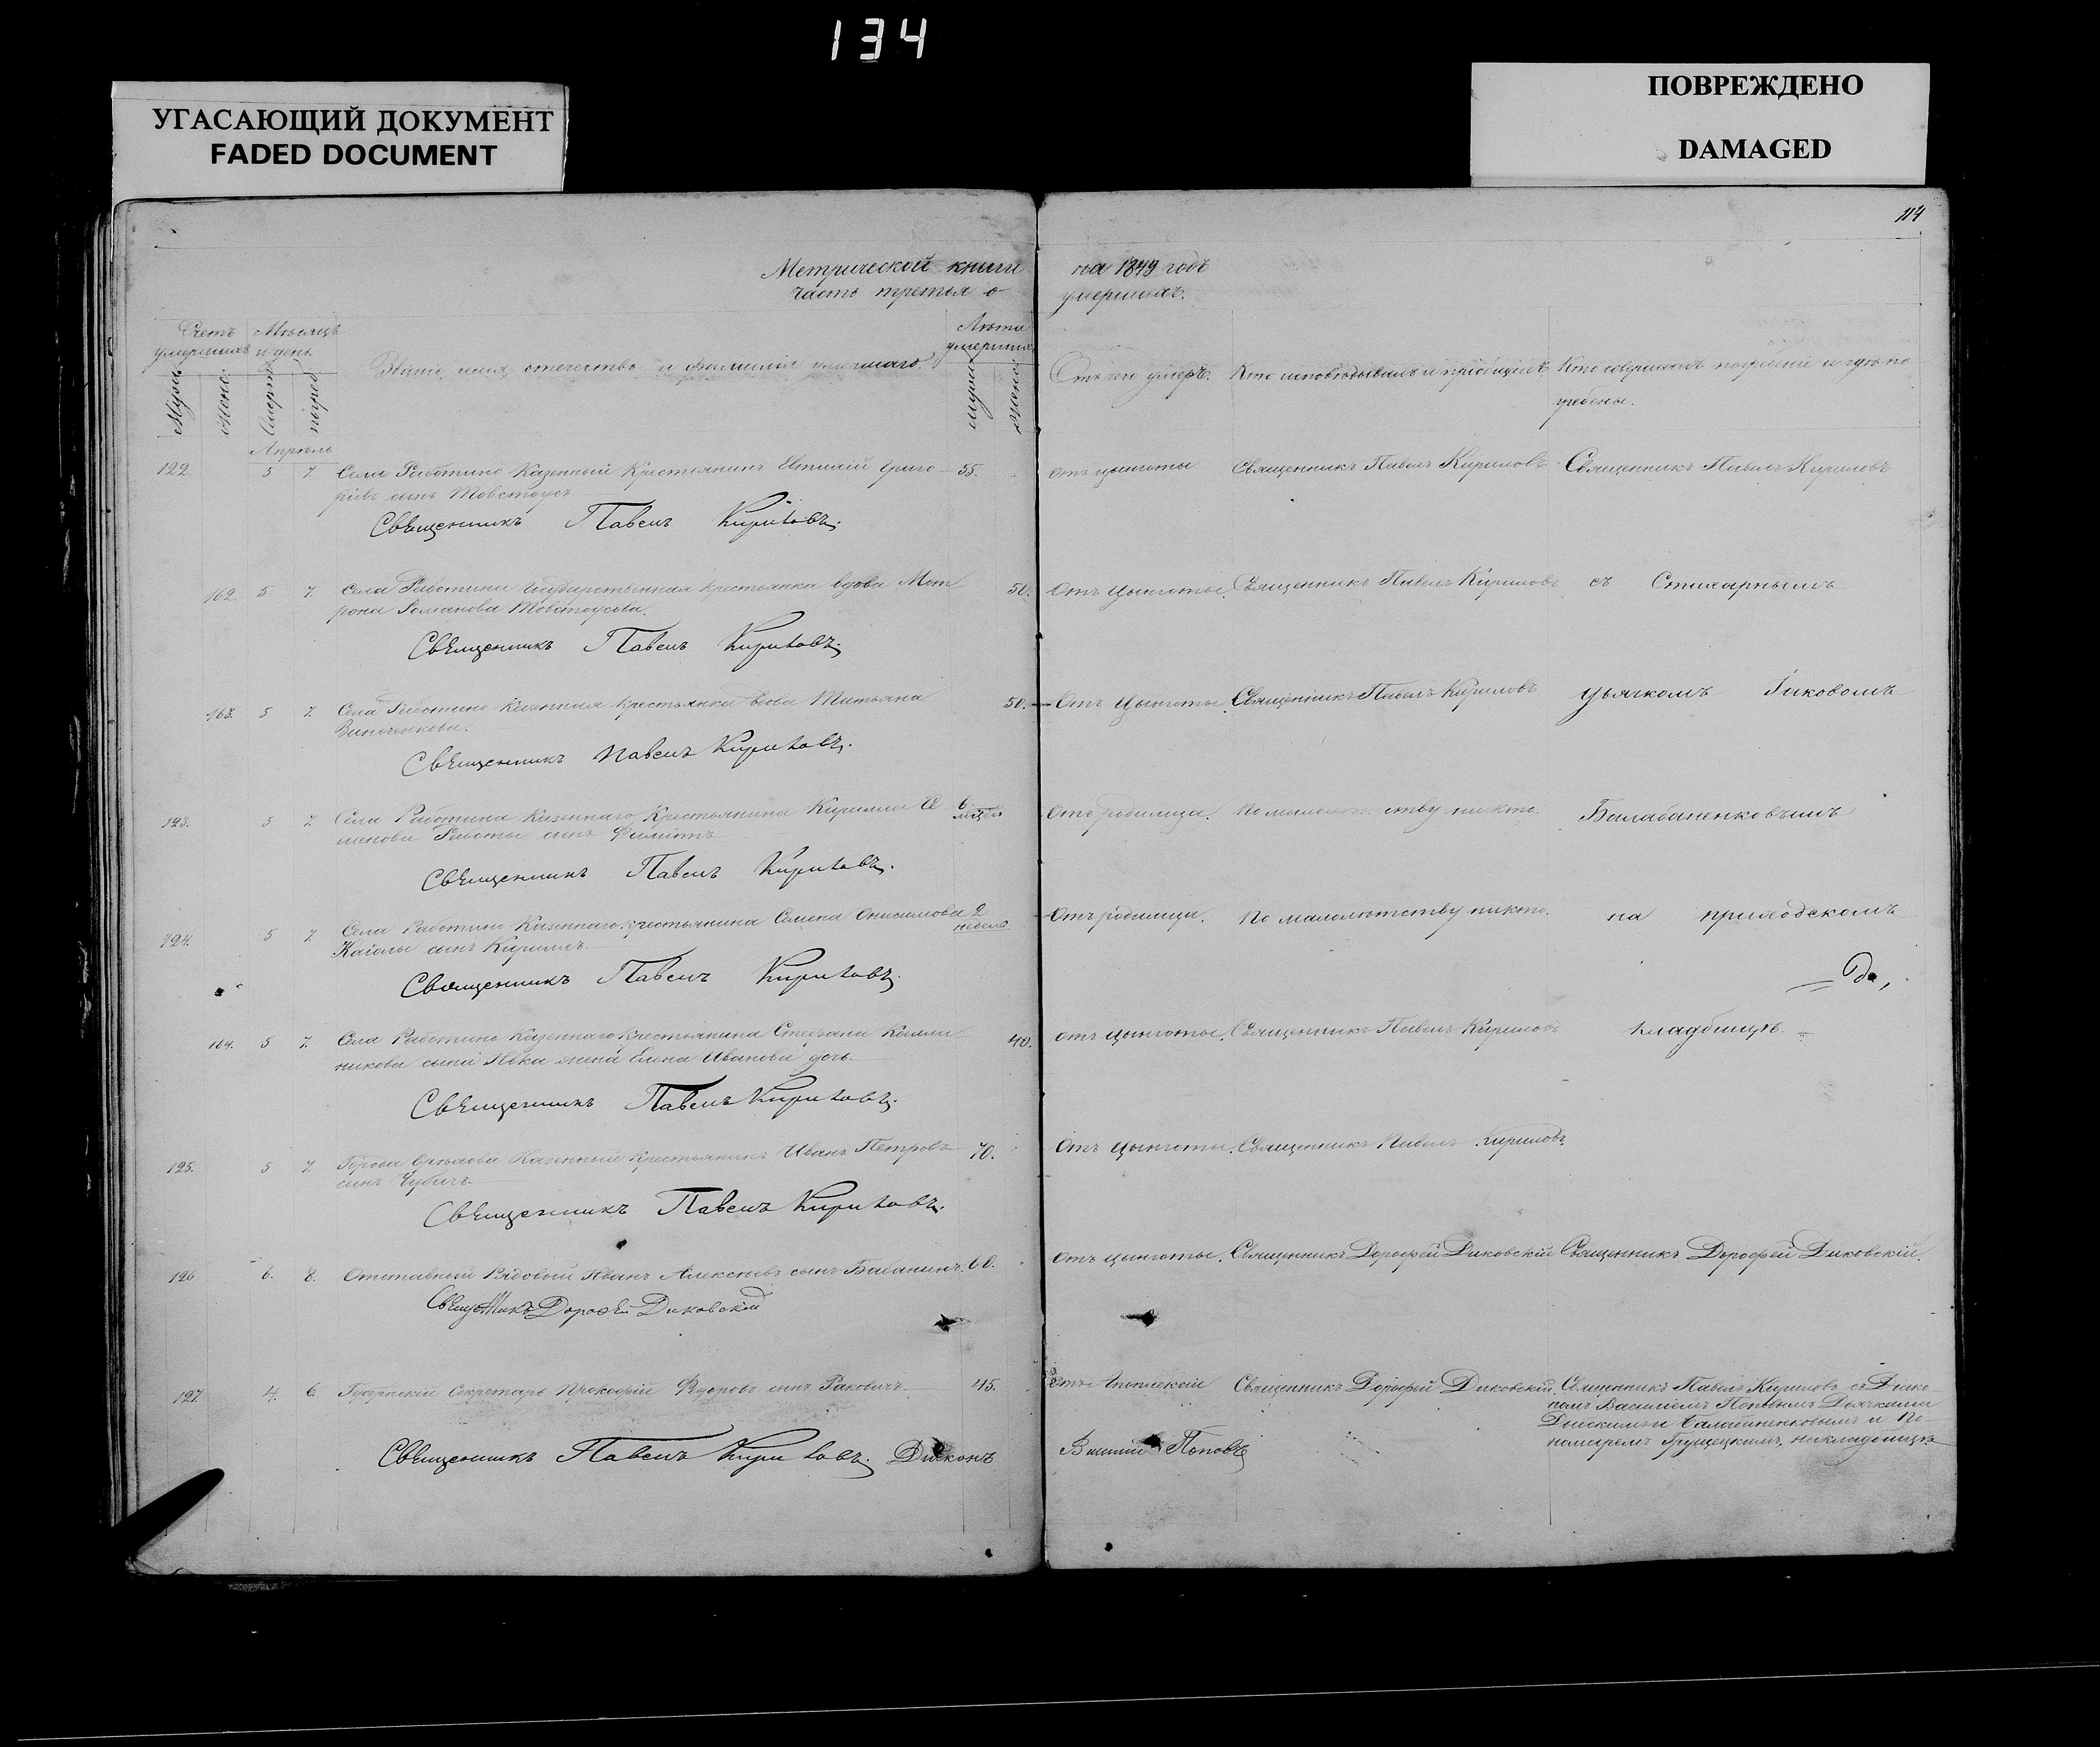 134
УГАСАЮЩИЙ ДОКУМЕНТ
FADED DOCUMENT
ПОВРЕЖДЕНО
DAMAGED
114
Метрической книги на 1849 годъ
часть третья о умершихъ.
Счетъ умершихъ
Мѣсяцъ и день
Званіе, имя, отечество и фамилія умершаго.
Лѣта умершихъ
Отъ чего умеръ.
Кто исповѣдывалъ и пріобщилъ.
Кто совершалъ погребеніе и гдѣ погребены.
Апрѣль
122 5 7. Села Работино Казенный Крестьянинъ Евтихій Григо 55. отъ цынготы Священникъ Павелъ Кириловъ Священникъ Павелъ Кириловъ
рievъ сынъ Товстоусъ
Священникъ Павелъ Кириловъ.
162. 5 7. Села Работина Государственная крестьянка вдова Мат 50. Отъ Цынготы. Священникъ Павелъ Кириловъ съ Стихарнымъ
рона Романова Товстоусова.
Священникъ Павелъ Кириловъ.
163. 5 7. Села Работино Казенная Крестьянка вдова Татьяна 50. Отъ Цынготы. Священникъ Павелъ Кириловъ Дьячкомъ Яковомъ
Священникъ Павелъ Кириловъ.
123. 5 7. Села Работина Казеннаго Крестьянина Кирилла 6 Отъ родимца. По никто. Балабаненковымъ
Работы сынъ
Священникъ Павелъ Кириловъ.
124. 5 7. Села Работино Казеннаго крестьянина Семена Онисимова 2 недель Отъ родимца. По малолѣтству никто. на приходскомъ
сынъ Кириллъ.
Священникъ Павелъ Кириловъ.
164. 5 7. Села Работино Казеннаго Крестьянина Стефана 40. отъ цынготы. Священникъ Павелъ Кириловъ кладбищѣ.
никова сына жена Елена Иванова дочь
Священникъ Павелъ Кириловъ.
125. 5 7. Города Орѣхова Казенный Крестьянинъ Иванъ Петровъ 70. Отъ Цынготы. Священникъ Павелъ Кириловъ
сынъ
Священникъ Павелъ Кириловъ.
126 6. 8. Отставный Рядовой Иванъ Алексѣевъ сынъ Бабанинъ. 60. Отъ цынготы. Священникъ Дорофей Диковскій Священникъ Дорофей Диковскій.
Священникъ Дорофей Диковскій
127. 4. 6. Губернскій Секретарь Прокофій Федоровъ сынъ Раковичъ. 45. Священникъ Дорофей Диковскій. Священникъ Павелъ Кириловъ съ Діако
номъ Василіемъ Поповымъ Дьячками
Балабаненковымъ и По
номаремъ Грущецкимъ, на кладбищѣ
Священникъ Павелъ Кириловъ. Діаконъ Василій Поповъ